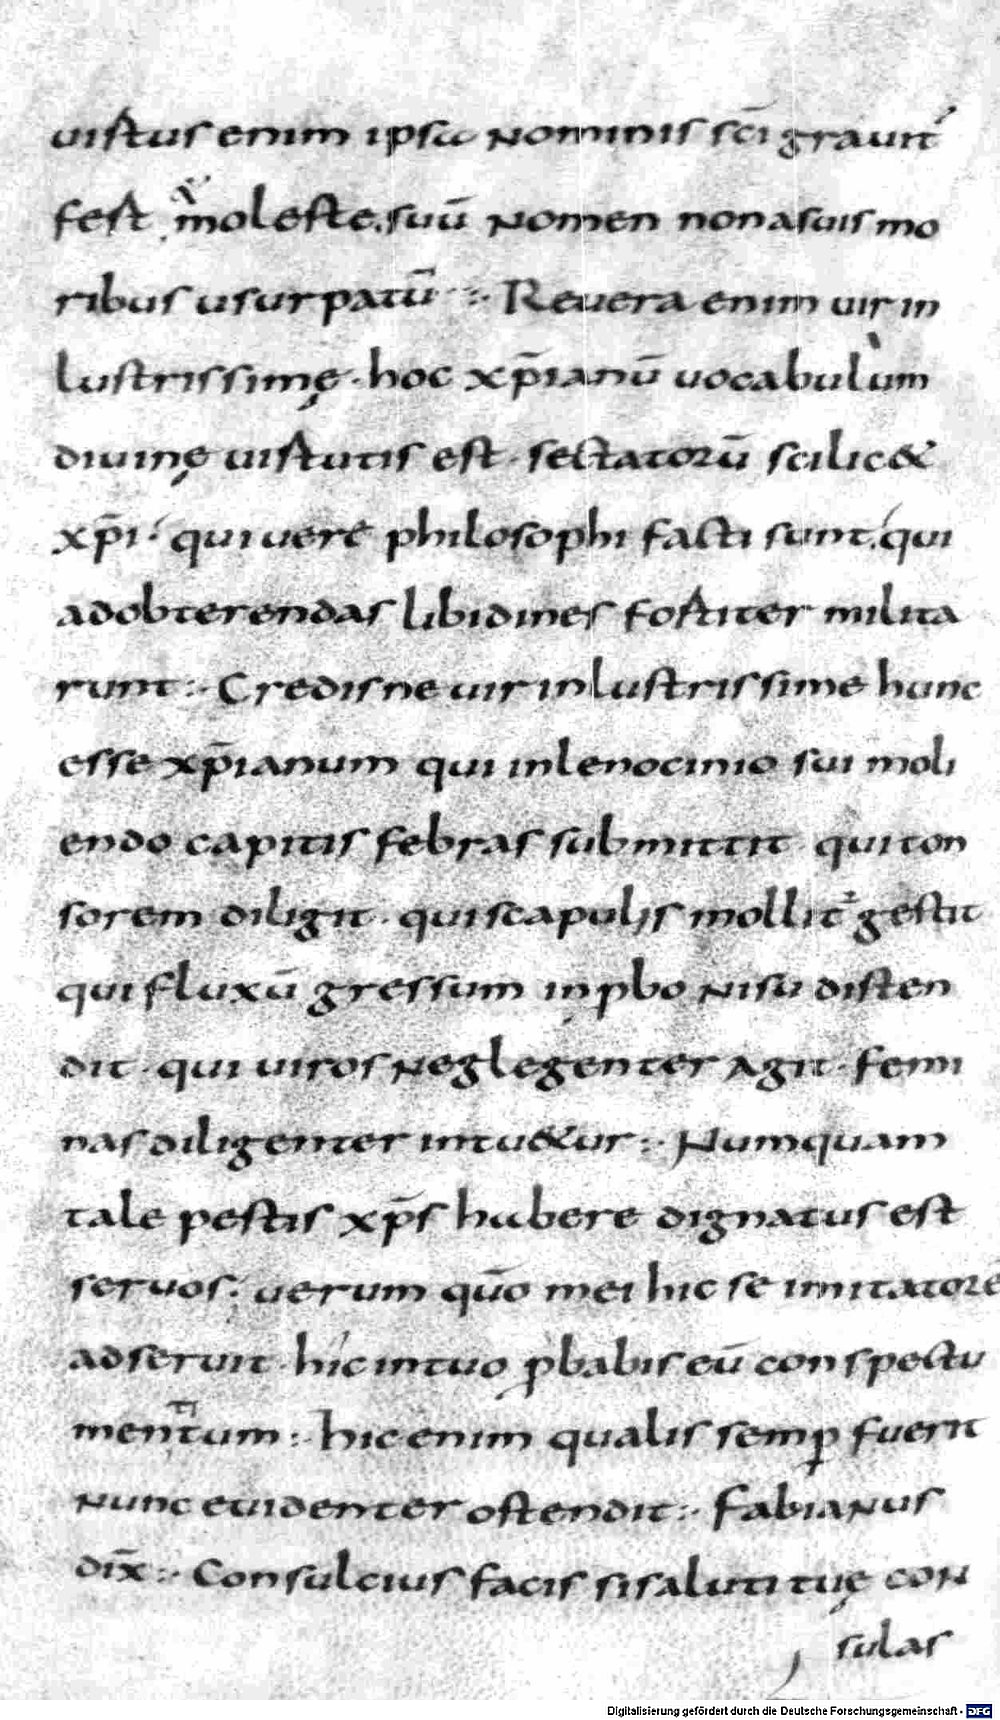 uirtus enim ipsa nominis sc̄i grauit᷑
fert. m̄oleste. suū nomen non a suis mo
ribus usurpatū :· Reuera enim uir in
lustrissimę · hoc xp̄ianū uocabulum
diuinę uirtutis est · sectatorū scilic&
xp̄i · qui uere philosophi facti sunt. qui
ad obterendas libidines fortiter milita
runt :· Credisne uir inlustrissime hunc
esse xp̄ianum qui in lenocinio sui moli
endo capitis febras submittit · qui ton
sorem diligit · qui scapulis mollit᷑ gestit
qui fluxū gressum inpbo nisu disten
dit · qui uiros neglegenter agit · femi
nas diligenter intu&ur :· Numquam
tale pestis xp̄s habere dignatus est
seruos · uerum quō mei hic se imitatorē
adseruit · hic in tuo p̱babis eū conspectu
mentitum :· hic enim qualis semp̱ fuerit
nunc euidenter ostendit :· Fabianus
dix̄ :· Consulcius facis si saluti tuę con
sulas
Digitalisierung gefördert durch die Deutsche Forschungsgemeinschaft - DFG